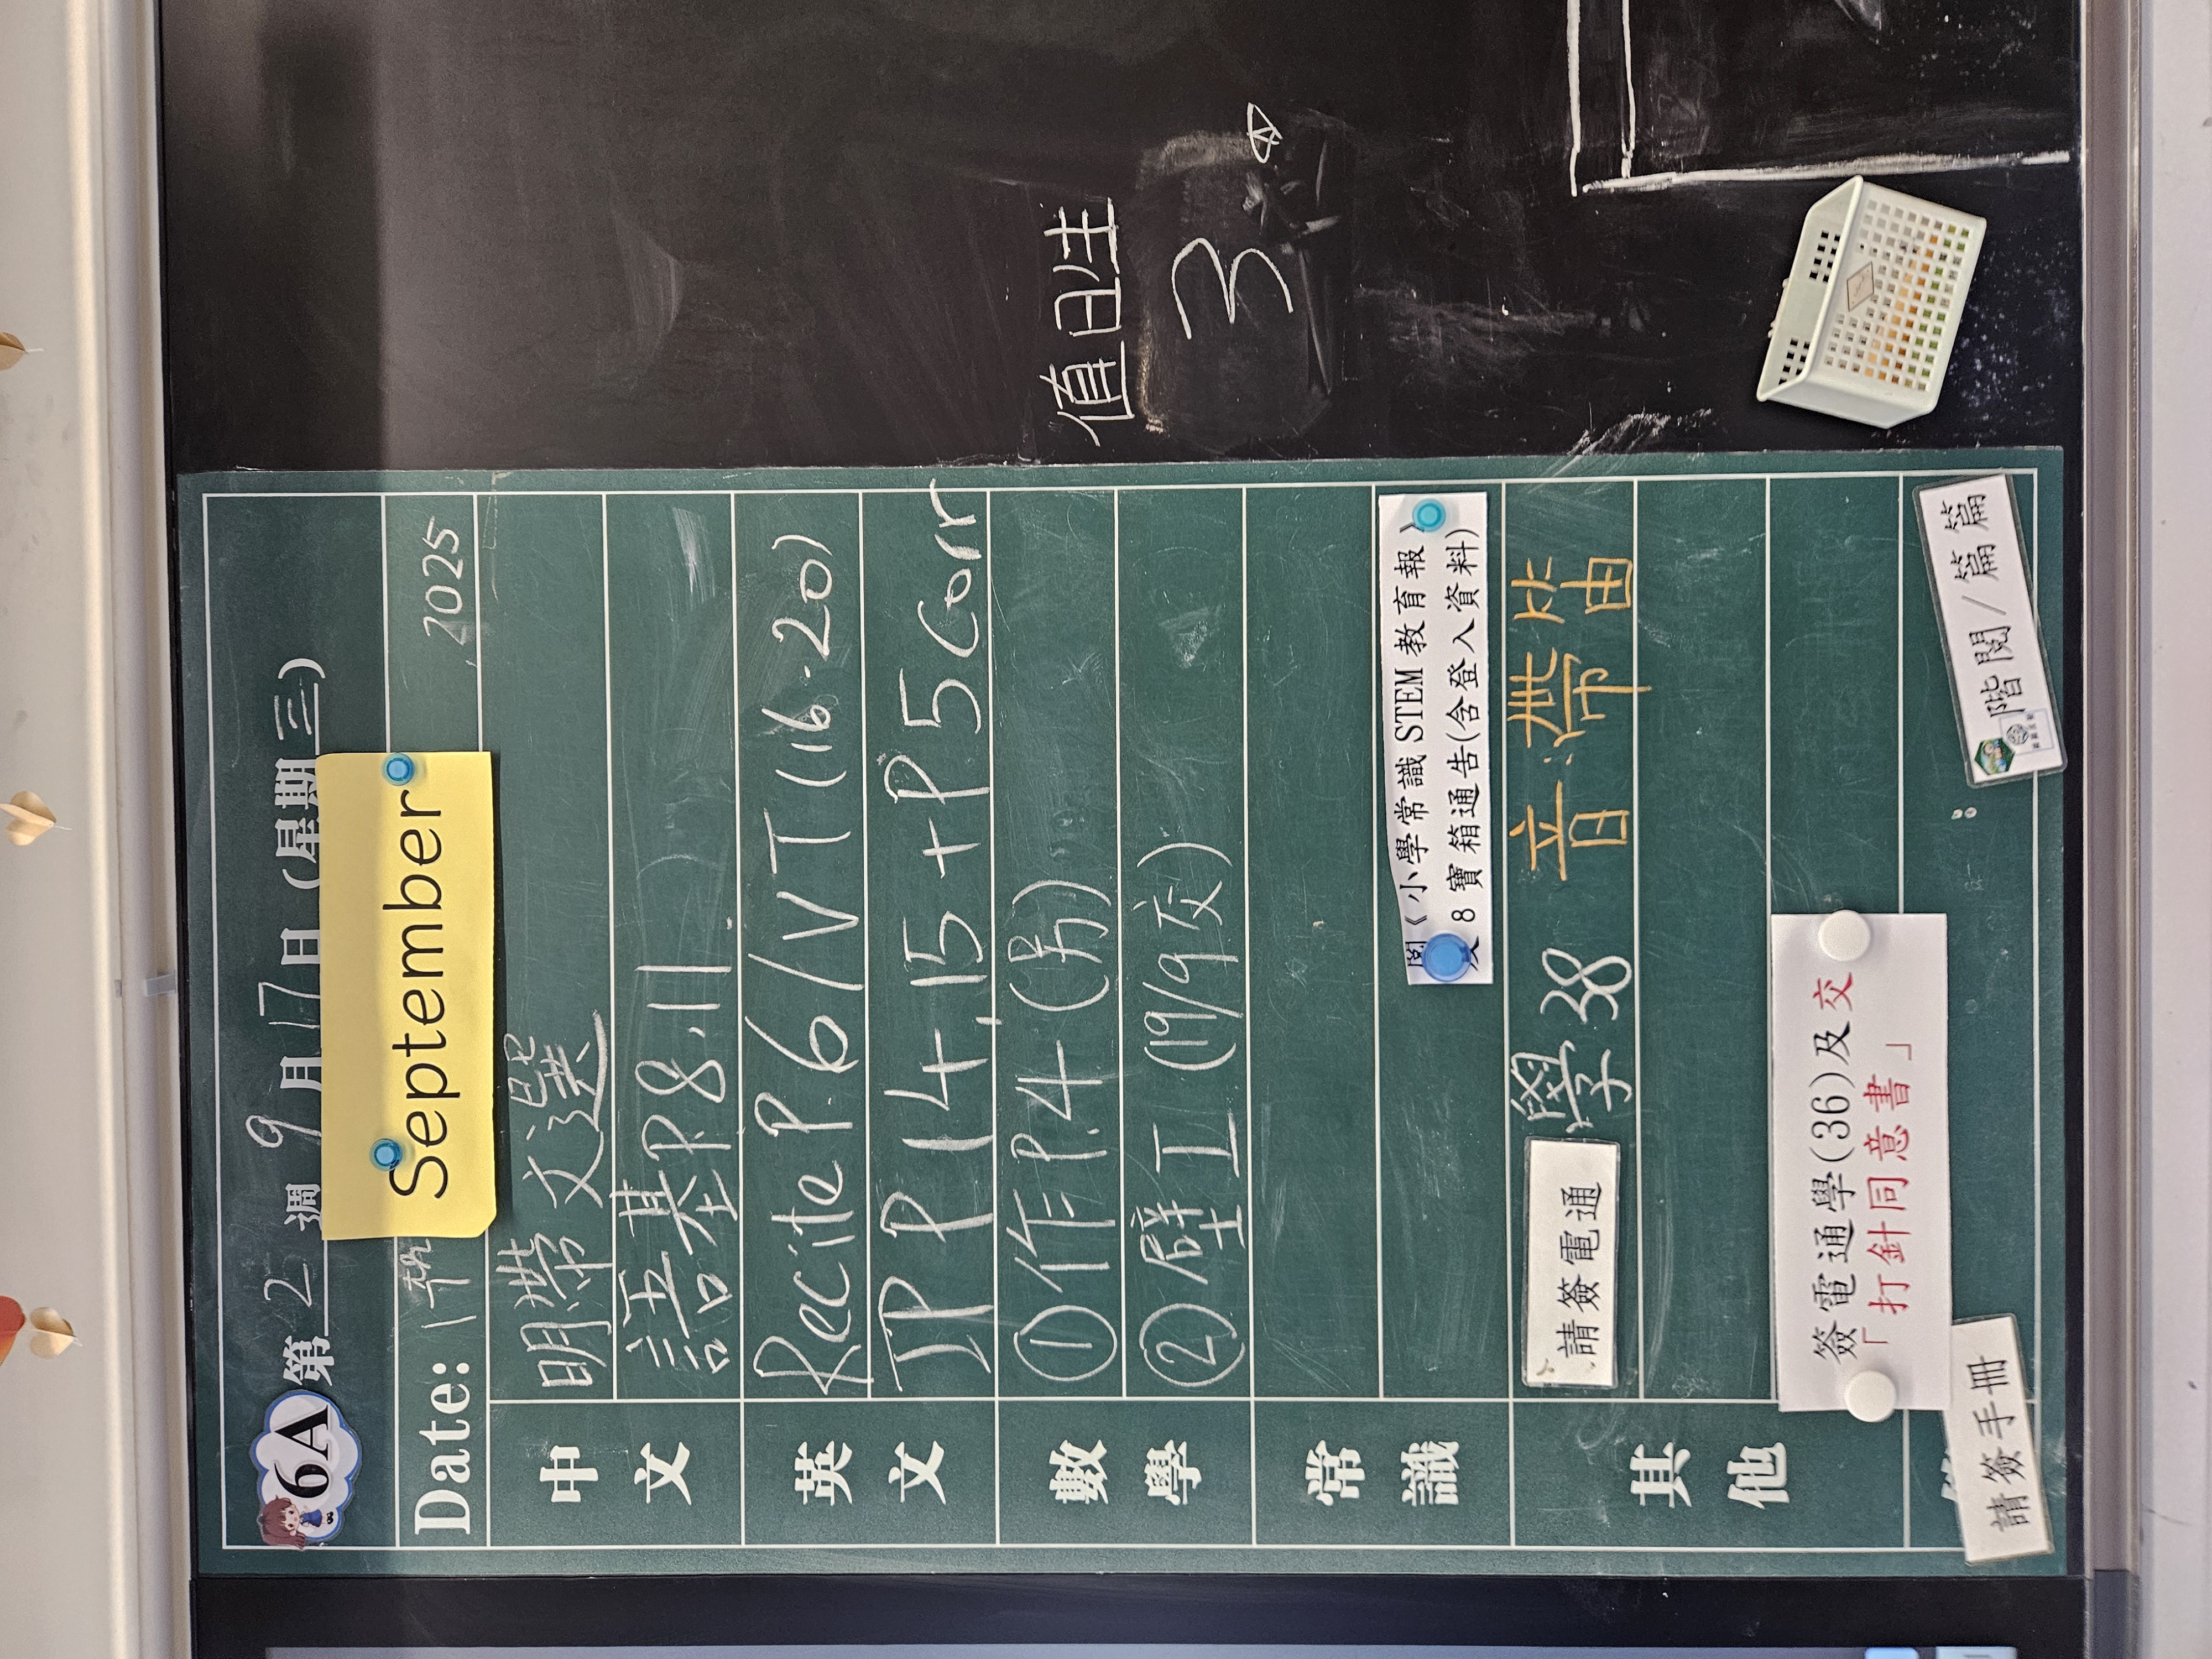 6A 第 2 週 9 月 17 日 (星期 三)
Date: 17th September 2025
中文
明帶文選
語基P.8.11
英文
Recite P.6/VT(16.20)
JP P 14,15+P5 Corr
數學
①作P.4(房)
②壁工(19/9交)
常識
閱《小學常識 STEM 教育報》
及 8 寶箱通告(含登入資料)
其他
請簽電通 學38 音:帶笛
簽電通學(36)及交
「打針同意書」
請簽手冊
階閱/篇篇
值日生
3